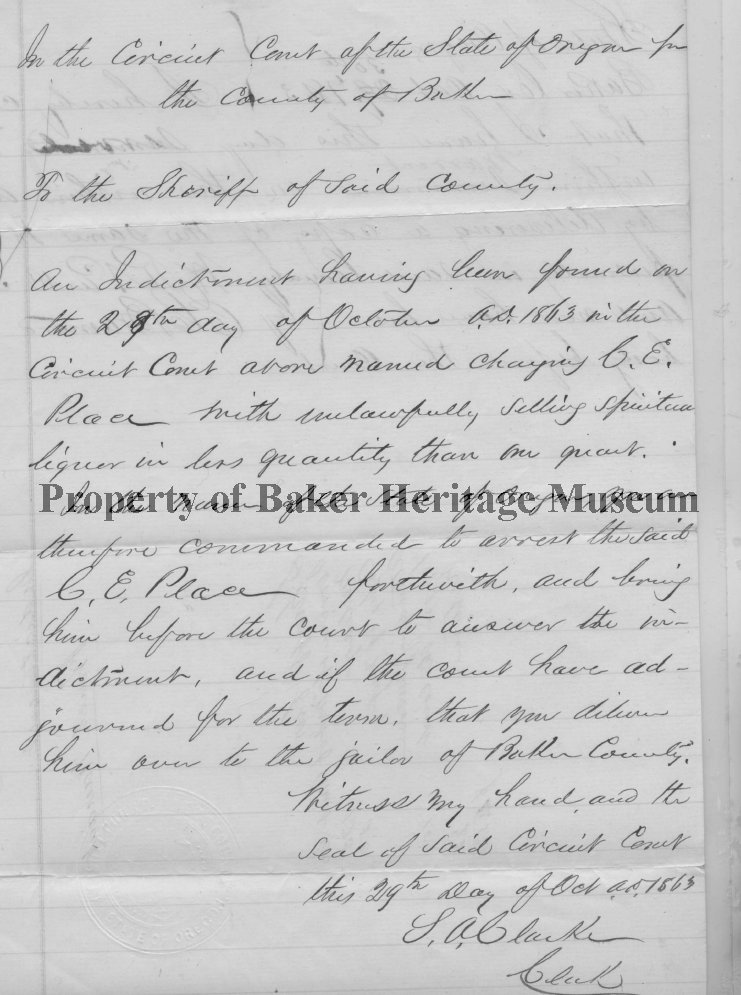 In the Circuit Court of the State of Oregon for
the County of Baker
To the Sheriff of Said County.
An Indictment having been found on
the 29th day of October A.D. 1863 in the
Circuit Court above named charging C. E.
Place with unlawfully selling spiritous
liquor in less quantity than one quart.
In the Name of the State of Oregon you are
Property of Baker Heritage Museum
therefore commanded to arrest the said
C. E. Place forthwith, and bring
him before the court to answer the in-
dictment, and if the court have ad-
journed for the term, that you deliver
him over to the jailor of Baker County.
Witness my hand and the
seal of said Circuit Court
this 29th Day of Oct A.D. 1863
S. A. Clarke
Clerk